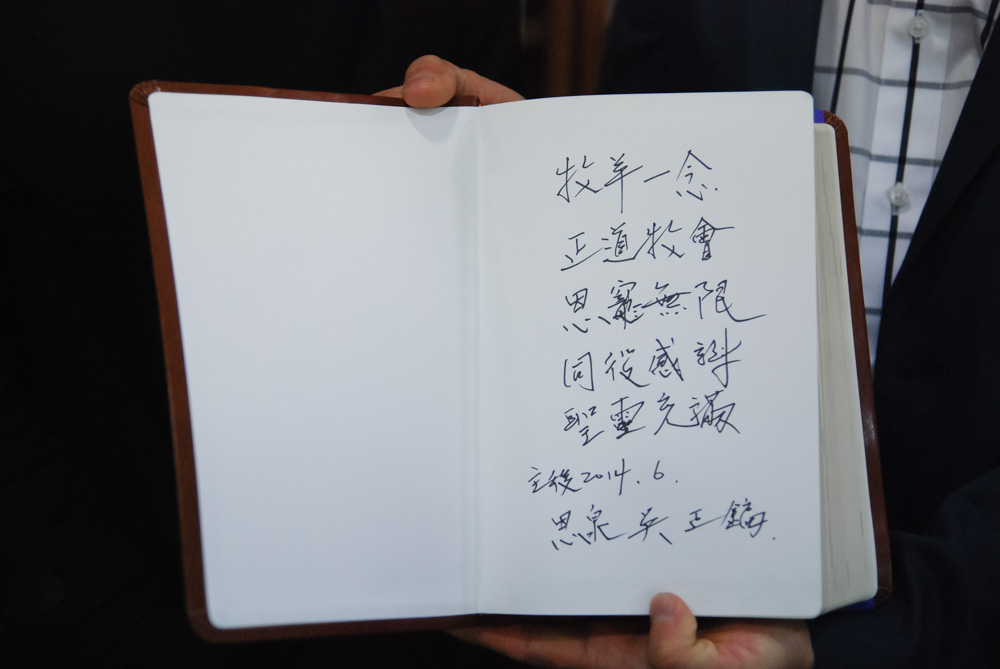 牧羊一念
正道牧會
恩寵無限
同役感謝
聖靈充滿
主後2014.6.
恩泉 吳正鎬.